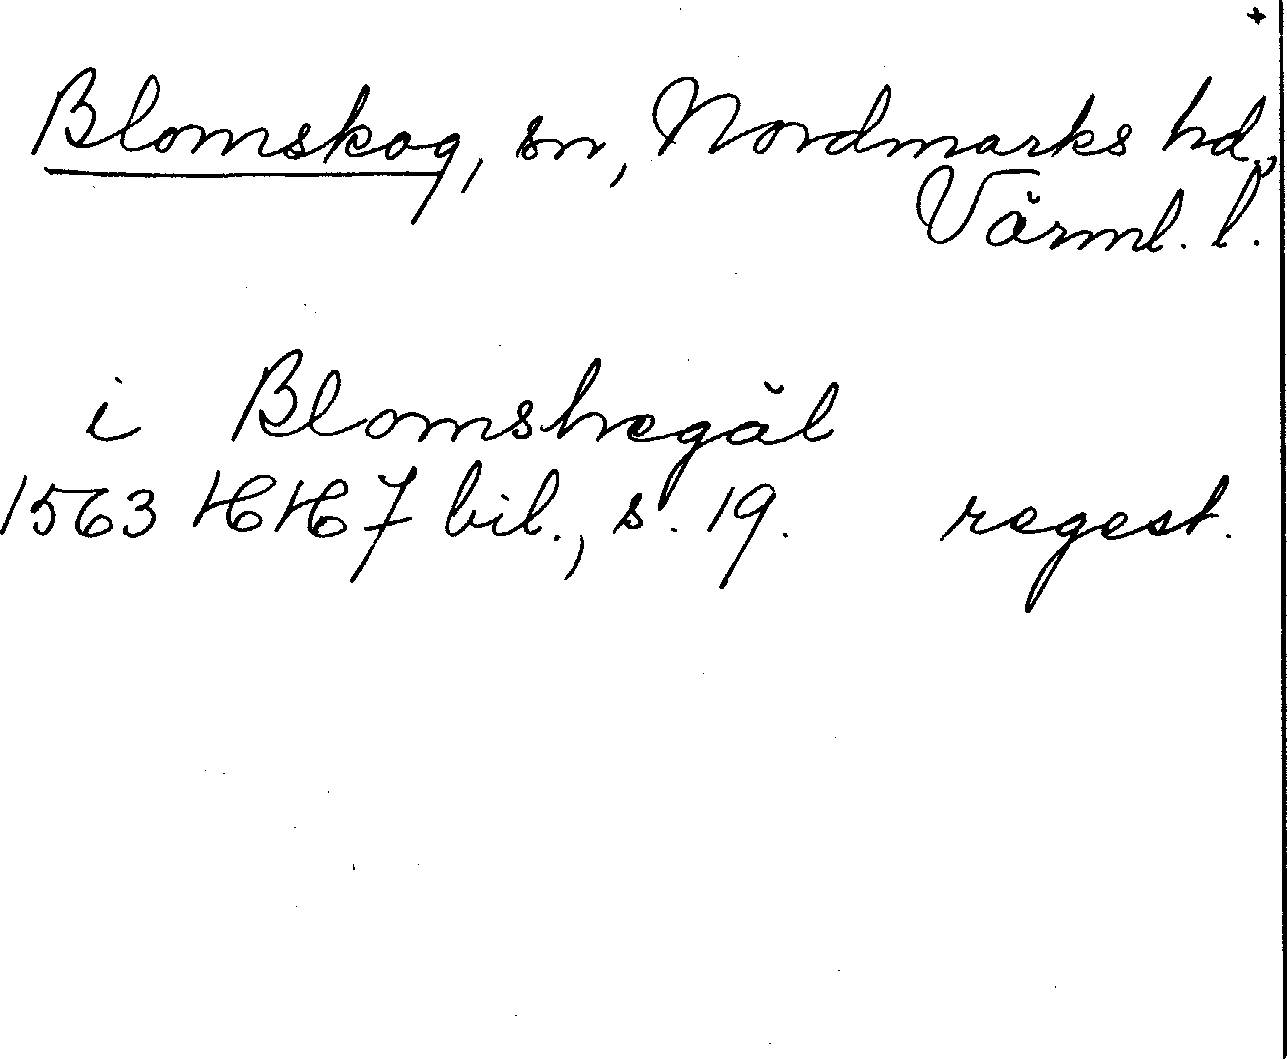 +
Blomskog, sn, Nordmarks hd.,
Värml. l.
i Blomshegäl
1563 HH 7 bil., s. 19. regest.